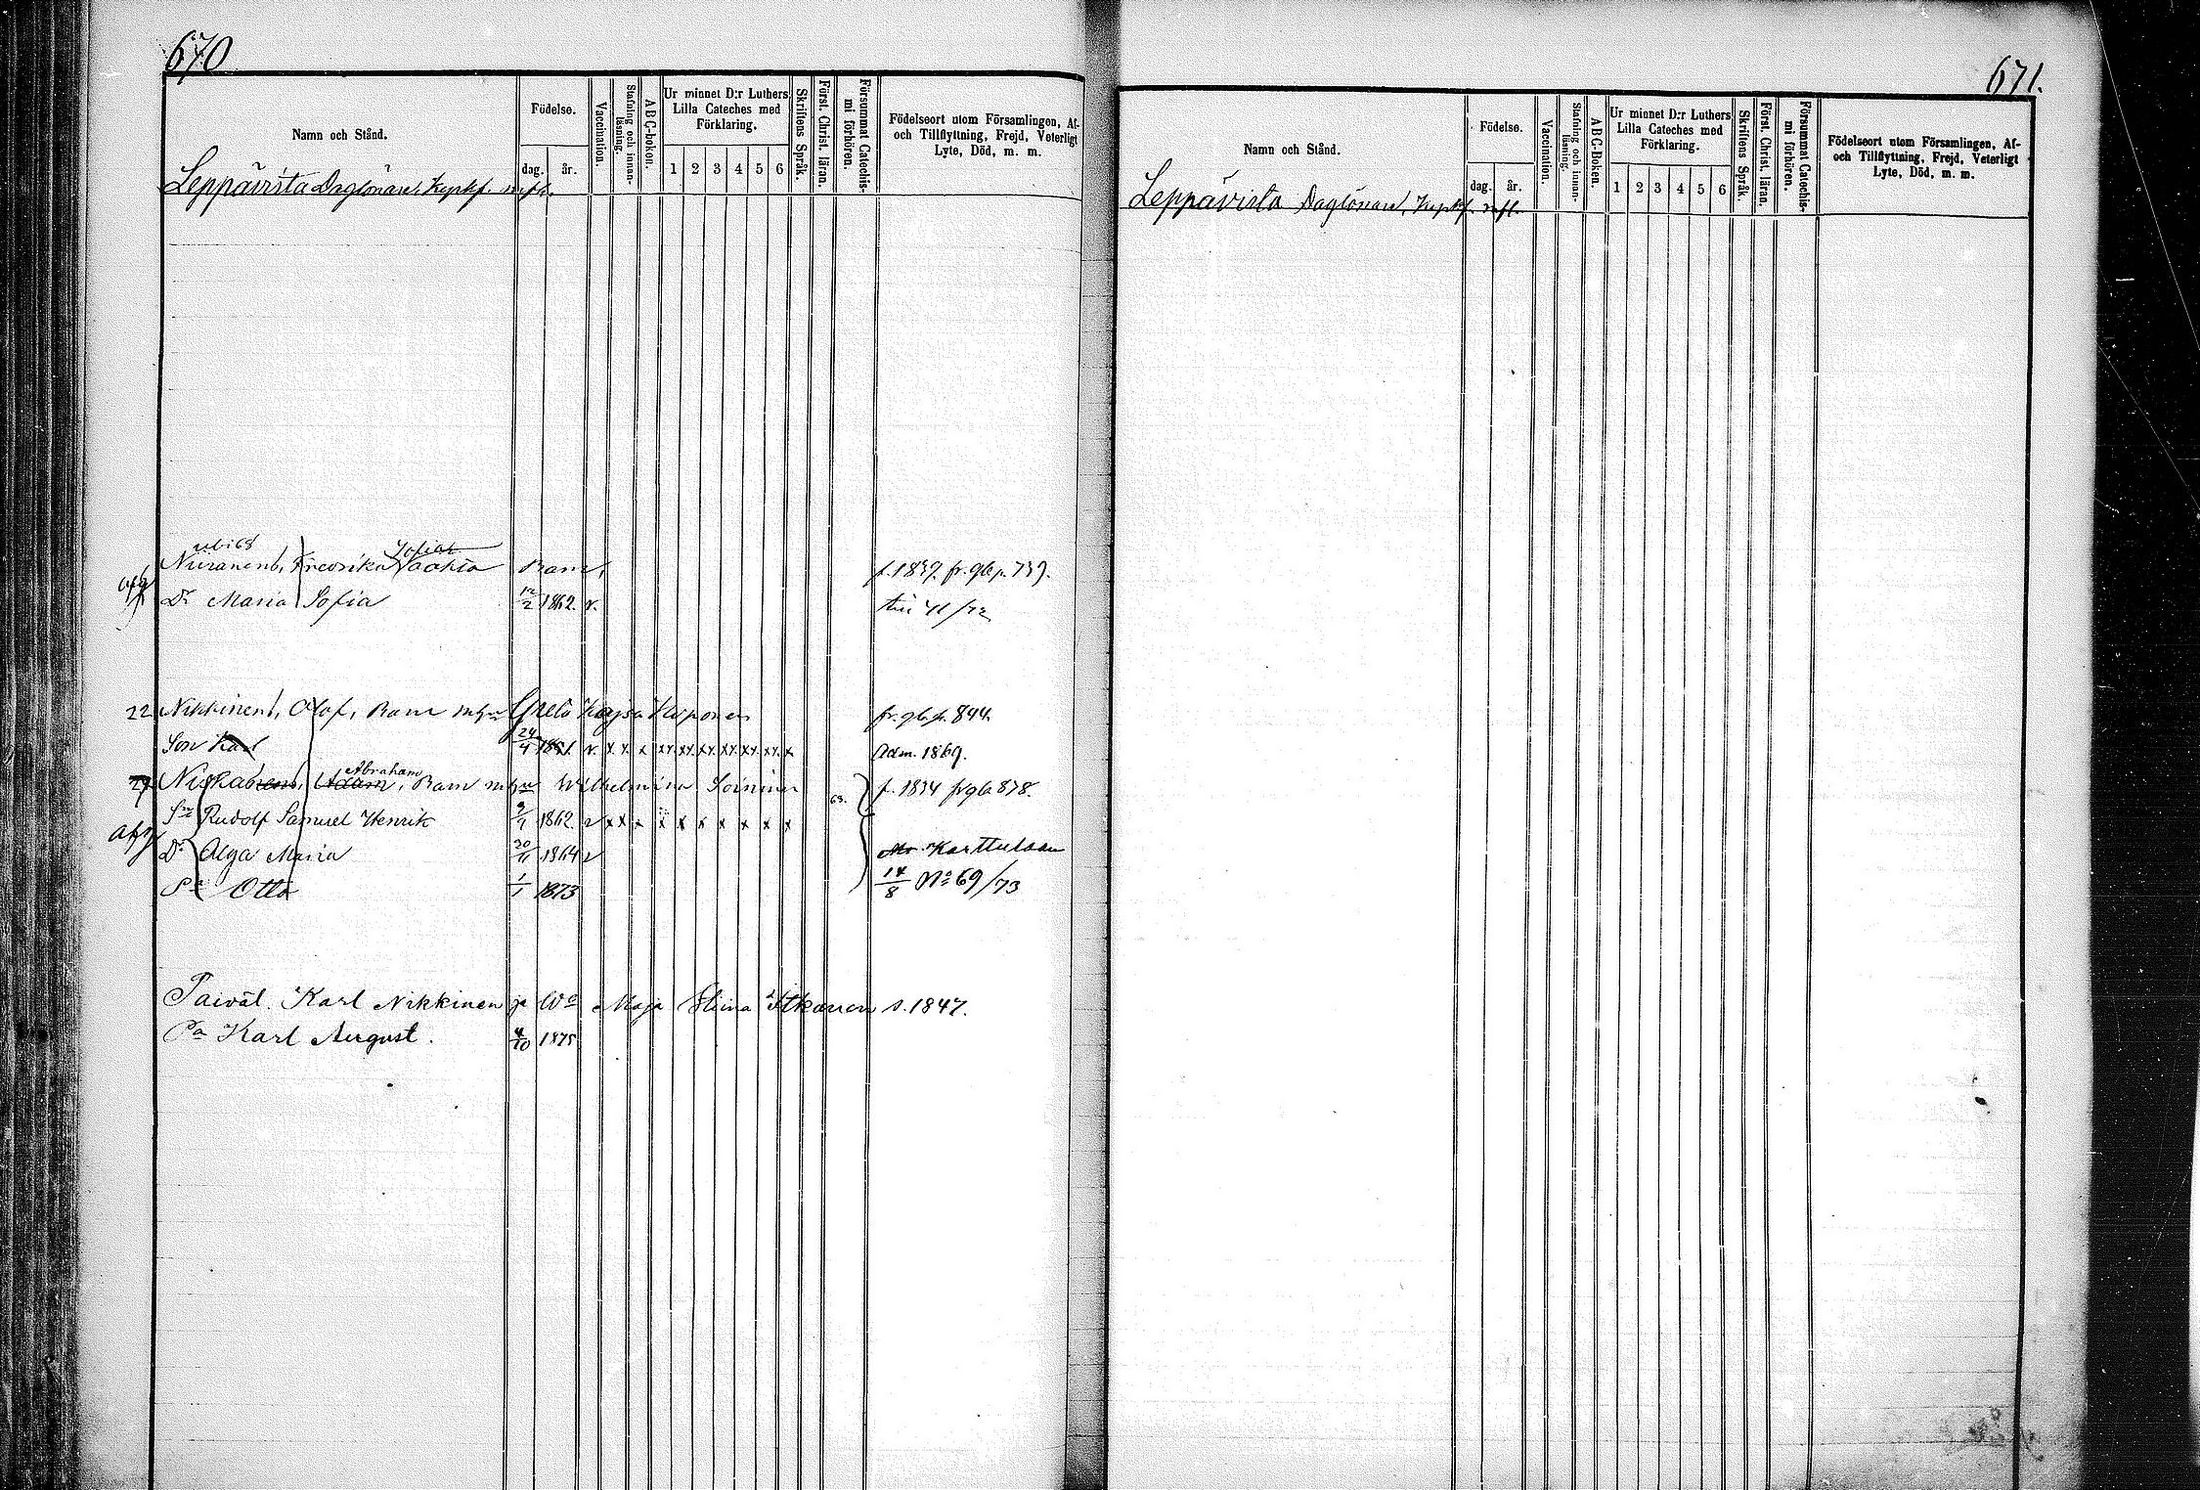 670
Namn och Stånd.
Födelse.
dag. år.
Vaccination.
Stafning och innan-läsning.
A B C-boken.
Ur minnet D:r Luthers Lilla Cateches med Förklaring.
1 2 3 4 5 6
Skriftens Språk.
Först. Christ. läran.
Försummat Catechis-mi förhören.
Födelseort utom Församlingen, Af- och Tillflyttning, Frejd, Veterligt Lyte, Död, m. m.
Leppävirta Daglönare, Kyrkf.
Sofia
Niiranen, Fredrika f. 1839. fr. gb p. 739.
Dr Maria Sofia 12/2 1862. v. 41/72
22 Nikkinen, Olof, Greta Kaysa Koponen fr. gb p. 844.
Son Karl 24/4 1851. v. x x. x xx. xx. xx. xx. xx. xx. x Adm. 1869.
Abraham
Adam, Wilhelmina Soininen 63. f. 1834 fr gb 878.
Sn Rudolf Samuel Henrik 9/7 1862. v x x x x x x x x x x
Dr Olga Maria 30/11 1864 v Karttulaan
Sn Otto 1/1 1873 14/8 No 69/73
Karl Nikkinen ja Wo Maja Stiina Itkonen s. 1847.
Pa Karl August. 4/10 1875
671.
Namn och Stånd.
Födelse.
dag. år.
Vaccination.
Stafning och innan-läsning.
A B C-Boken.
Ur minnet D:r Luthers Lilla Cateches med Förklaring.
1 2 3 4 5 6
Skriftens Språk.
Först. Christ. läran.
Försummat Catechis-mi förhören.
Födelseort utom Församlingen, Af- och Tillflyttning, Frejd, Veterligt Lyte, Död, m. m.
Leppävirta Daglönare, Kyrkf.